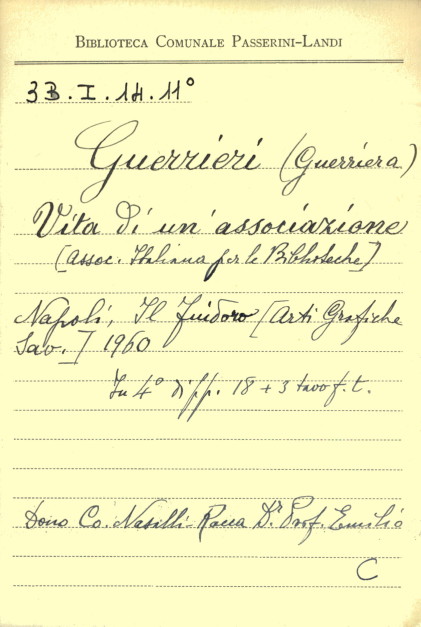 BIBLIOTECA COMUNALE PASSERINI-LANDI
3B.I.14.11°
Guerrieri (Guerriera)
Vita di un' associazione
[Assoc. Italiana per le Biblioteche]
Napoli, Il Fuidoro [Arti Grafiche
Sav.] 1960
In 4° di pp. 18 + 3 tavo f. t.
Dono Co. Nasalli Rocca Dr Prof. Emilio
C